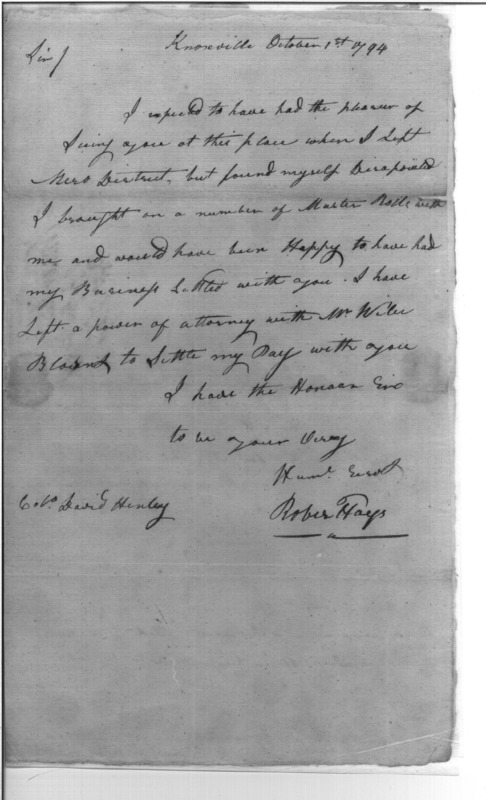 Knoxville October 1st 1794
Sir /
I expected to have had the pleasure of
Seing you at this place when I Left
Mero District, but found myself Disapointed
I brought on a number of Muster Rolls with
me and would have been Happy to have had
my Business Settled with you. I have
Left a power of attorney with Mr Willie
Blount to Settle my Pay with you
I have the Honour Sir
to be your Very
Huml. Servt
Robert Hays
Colo. David Henley